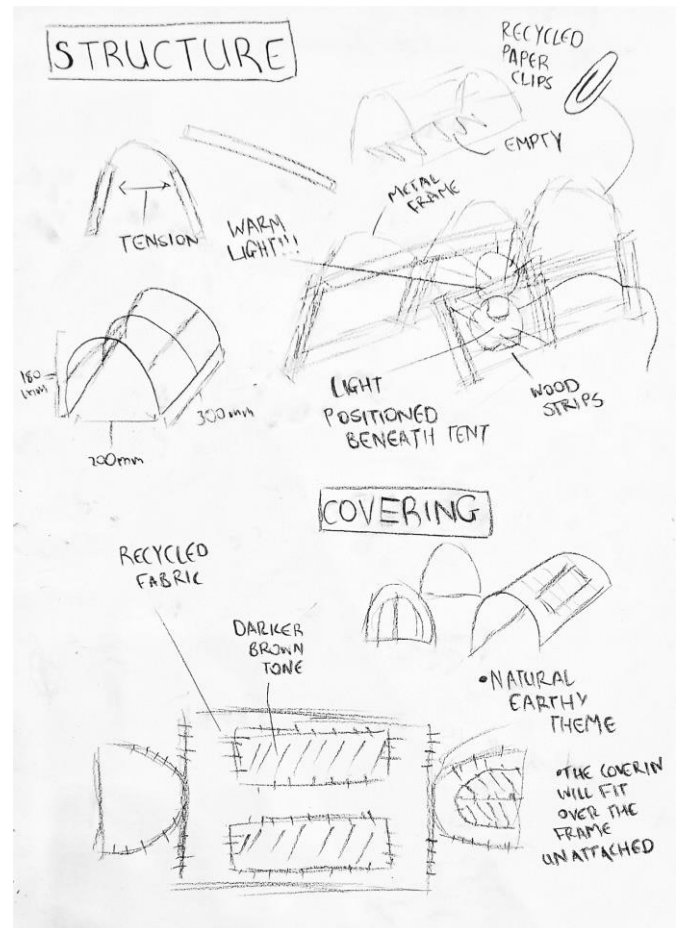 STRUCTURE
RECYCLED
PAPER
CLIPS
EMPTY
METAL
FRAME
TENSION
WARM
LIGHT!!!
180
mm
200mm
300mm
LIGHT
POSITIONED
BENEATH TENT
WOOD
STRIPS
COVERING
RECYCLED
FABRIC
DARKER
BROWN
TONE
•NATURAL
EARTHY
THEME
•THE COVERIN
WILL FIT
OVER THE
FRAME
UNATTACHED